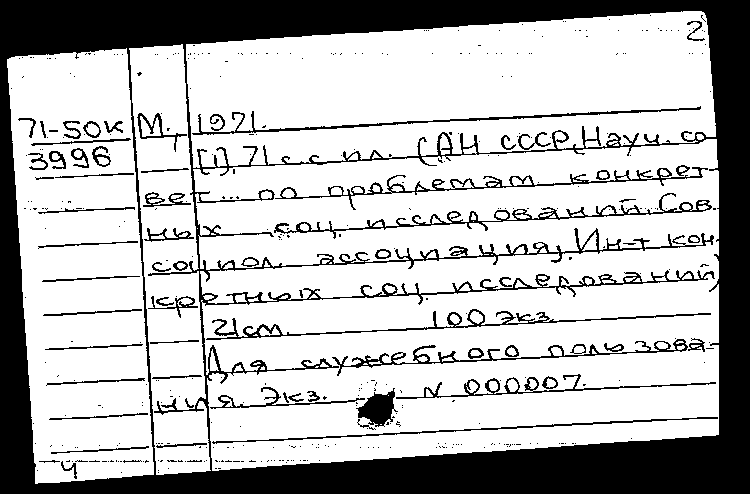 2
71-50к М., 1971.
3996 [1], 71 с. с ил. (АН СССР, Науч. со
вет ... по проблемам конкрет-
ных соц. исследований. Сов.
социол. ассоциация, Ин-т кон-
кретных соц. исследований)
21см. 100 экз.
Для служебного пользова-
ния. Экз. N 000007.
ч